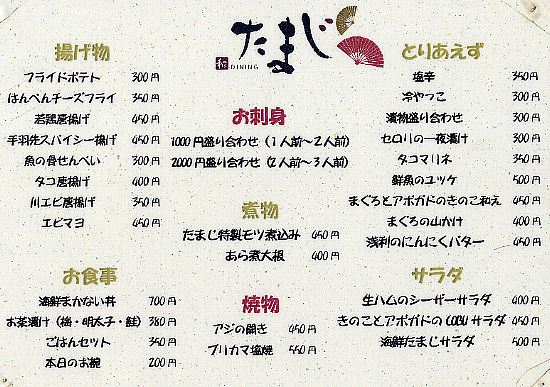 和
DINING
たまじ
揚げ物
フライドポテト 300円
はんぺんチーズフライ 350円
若鶏唐揚げ 450円
手羽先スパイシー揚げ 450円
魚の骨せんべい 300円
タコ唐揚げ 400円
川エビ唐揚げ 350円
エビマヨ 450円
お食事
海鮮まかない丼 700円
お茶漬け（梅・明太子・鮭） 380円
ごはんセット 350円
本日のお椀 200円
お刺身
1000円盛り合わせ（1人前〜2人前）
2000円盛り合わせ（2人前〜3人前）
煮物
たまじ特製モツ煮込み 450円
あら煮大根 400円
焼物
アジの開き 450円
ブリカマ塩焼 550円
とりあえず
塩辛 350円
冷やっこ 300円
漬物盛り合わせ 300円
セロリの一夜漬け 300円
タコマリネ 350円
鮮魚のユッケ 500円
まぐろとアボガドのきのこ和え 450円
まぐろの山かけ 400円
浅利のにんにくバター 450円
サラダ
生ハムのシーザーサラダ 400円
きのことアボガドのCOBUサラダ 450円
海鮮たまじサラダ 500円